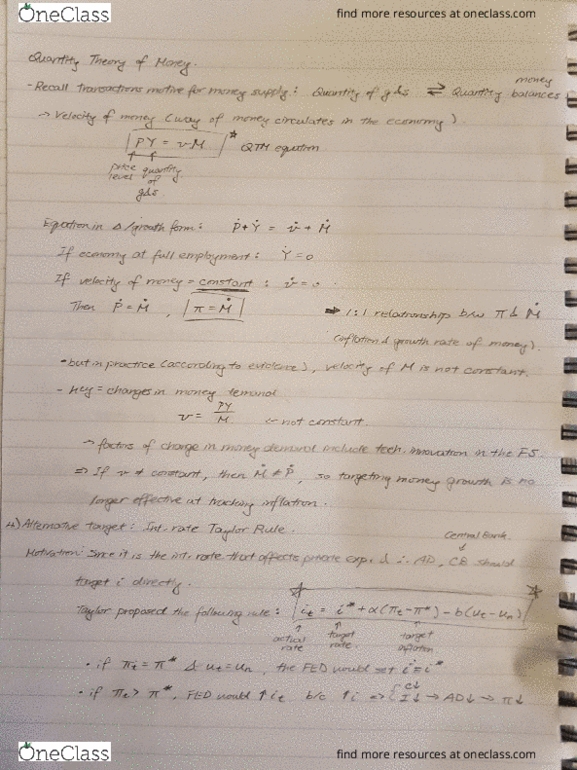 OneClass
find more resources at oneclass.com
Quantity Theory of Money.
- Recall transactions motive for money supply: Quantity of gds ⇄ Quantity money balances
→ Velocity of money (way of money circulates in the economy).
PY = v·M * QTM equation
price level quantity of gds.
Equation in Δ/growth form: Ṗ+Ẏ = v̇ + Ṁ
If economy at full employment: Ẏ=0
If velocity of money = constant : v̇=0
Then Ṗ=Ṁ , π=Ṁ ⇒ 1:1 relationship b/w π & Ṁ
(inflation & growth rate of money).
• but in practice (according to evidence), velocity of M is not constant.
- Key = changes in money demand
v = PY/M ← not constant.
→ factors of change in money demand include tech. innovation in the FS.
⇒ If v ≠ constant, then Ṁ ≠ Ṗ, so targeting money growth is no
longer effective at tracking inflation.
4) Alternative target: Int. rate Taylor Rule.
Central Bank.
Motivation: Since it is the int. rate that affects private exp. & ∴ AD, CB should
target i directly.
Taylor proposed the following rule: it = i* + a(πt-π*) - b(ut-un)
actual rate target rate. target inflation
• if πt = π* & ut=un, the FED would set i=i*
• if πt > π*, FED would ↑it b/c ↑i ⇒ C↓ I↓ → AD↓ → π↓
OneClass
find more resources at oneclass.com